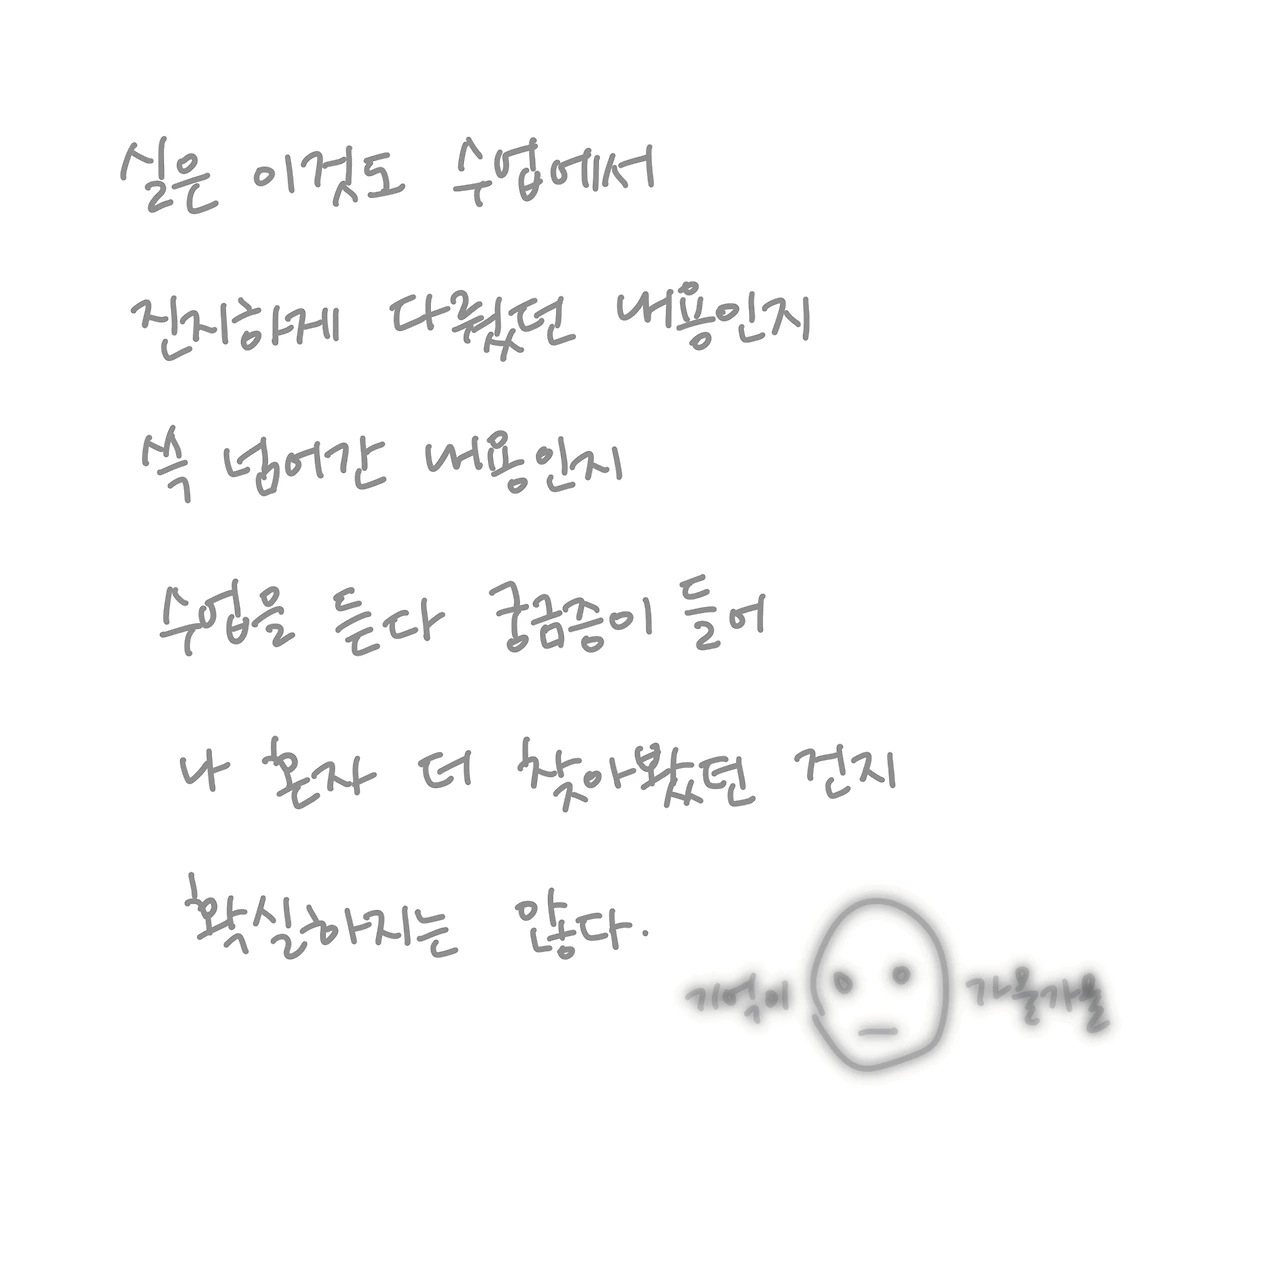 실은 이것도 수업에서
진지하게 다뤘던 내용인지
쓱 넘어간 내용인지
수업을 듣다 궁금증이 들어
나 혼자 더 찾아봤던 건지
확실하지는 않다.
기억이 가물가물